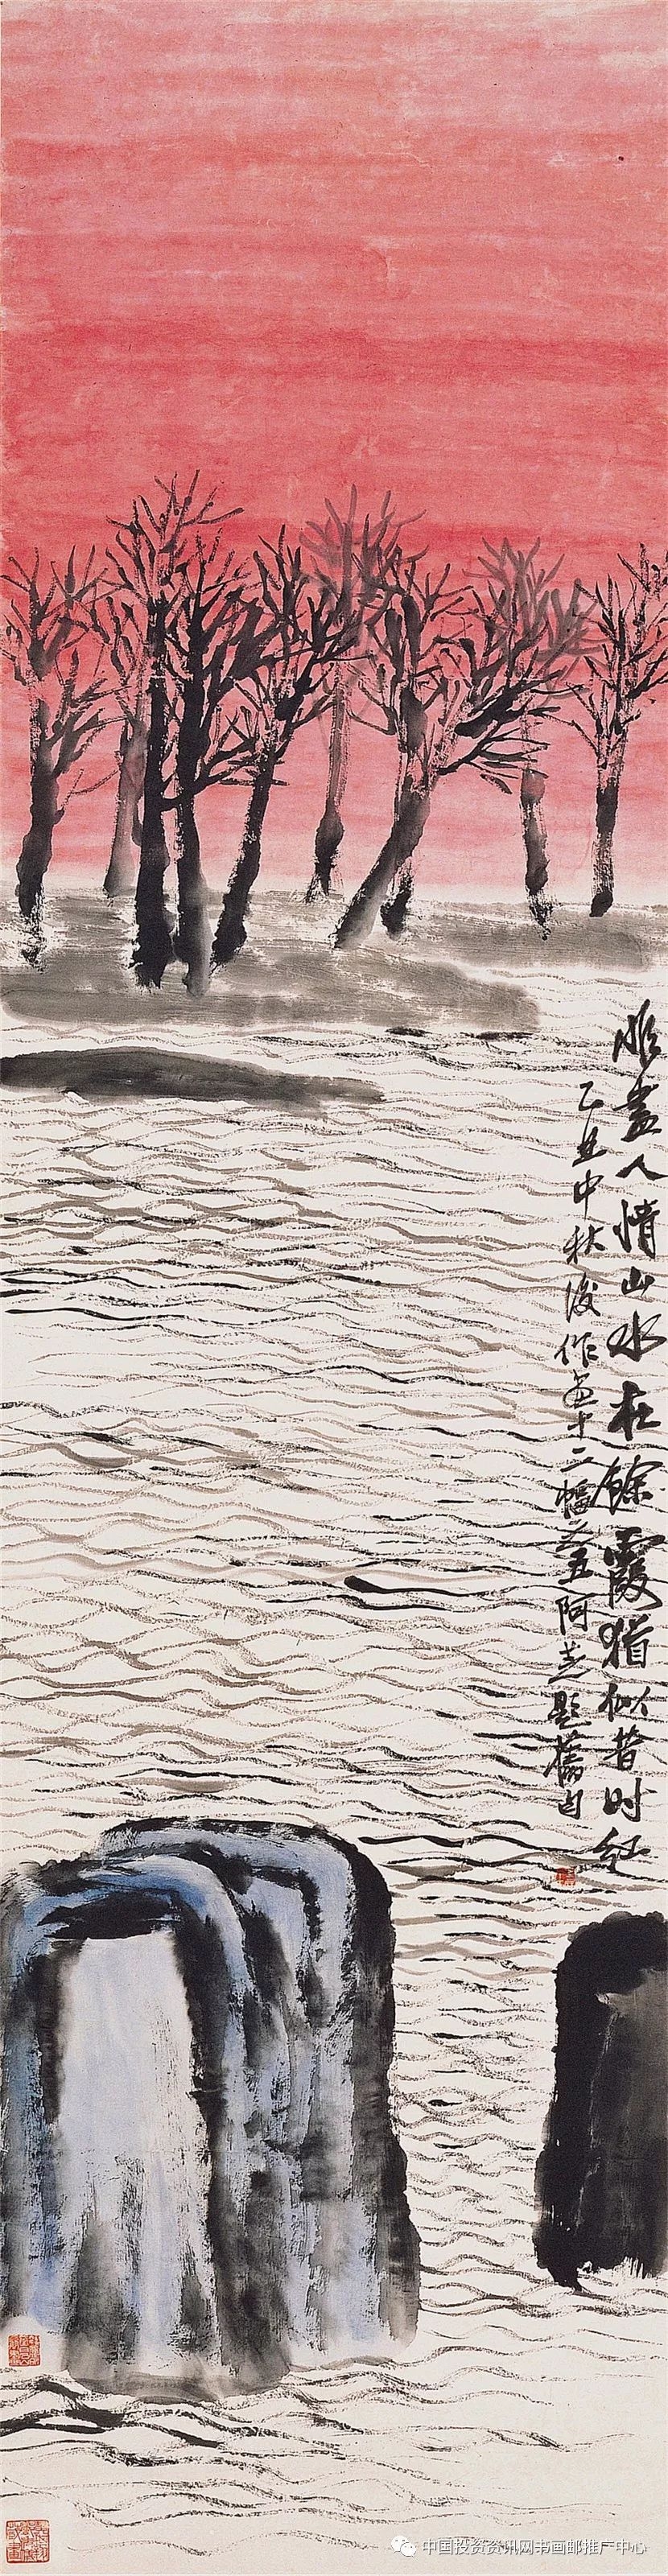 盡人情山水在餘霞猶似昔时紅
乙丑中秋後作画十二幅之五阿芝題舊句
中国投资资讯网书画邮推广中心